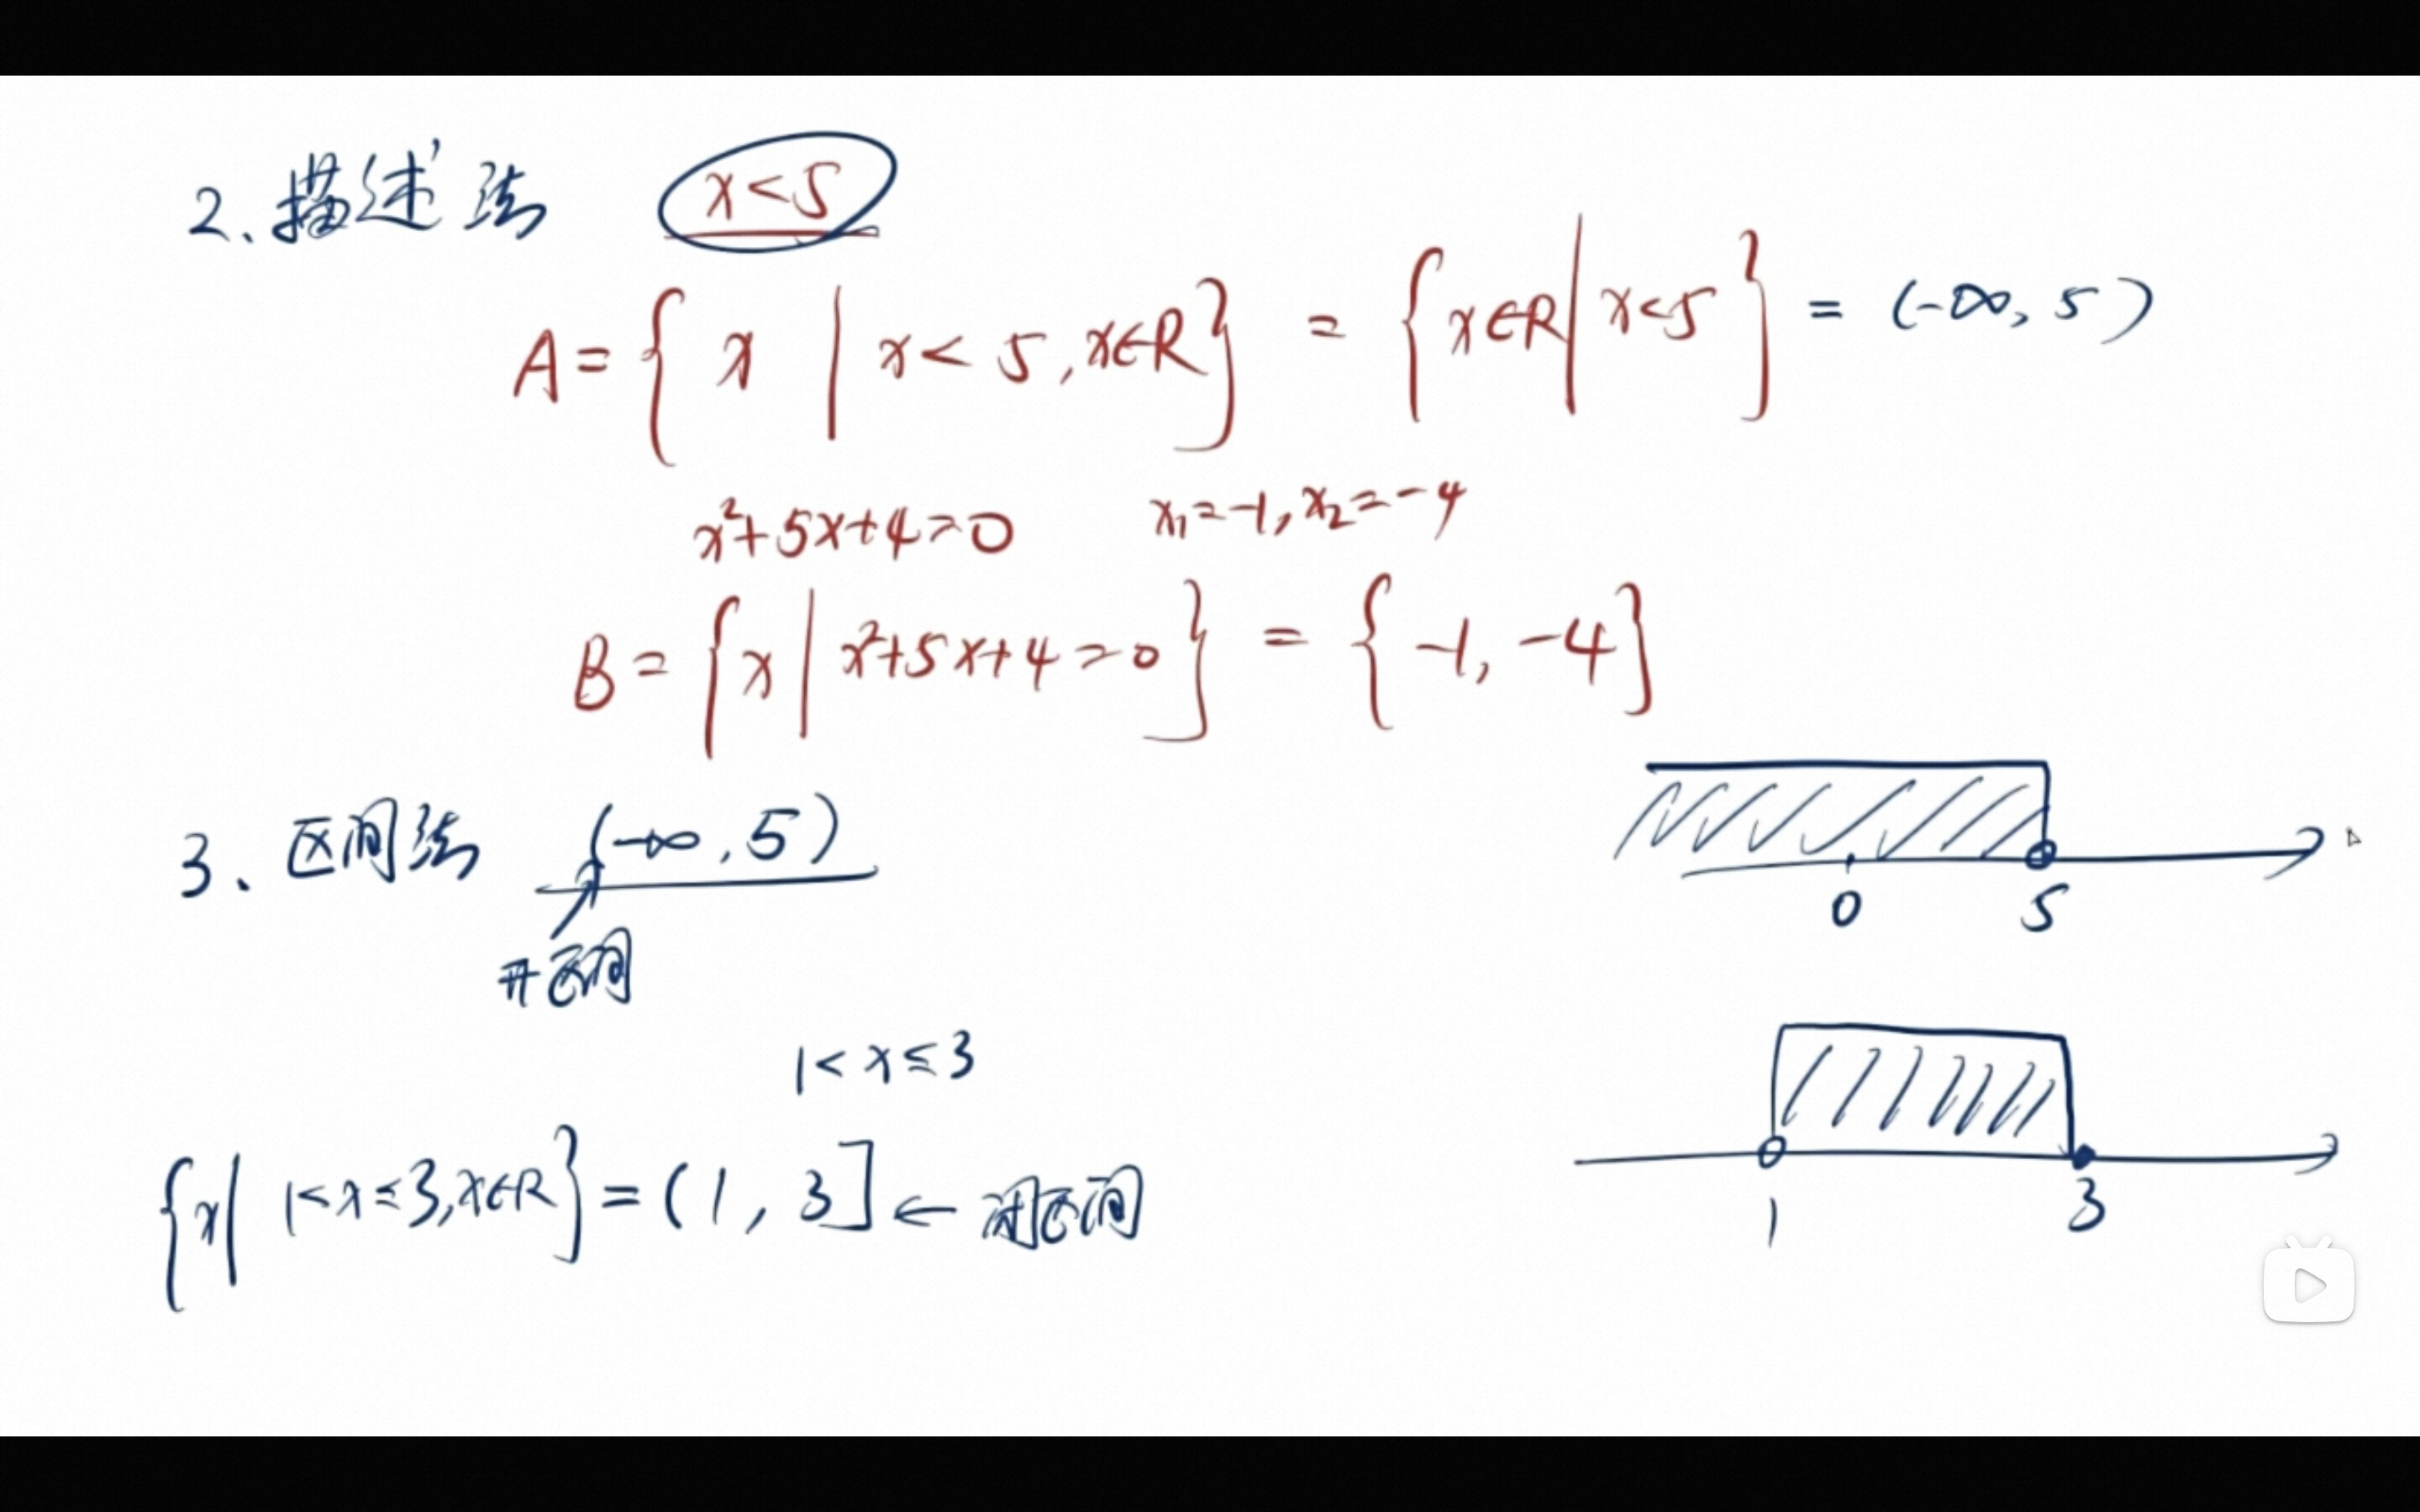 2、描述法 x<5
A={ x | x<5,x∈R} = {x∈R | x<5} = (-∞, 5)
x²+5x+4=0 x₁=-1, x₂=-4
B={x | x²+5x+4=0} = {-1, -4}
3、区间法 (-∞, 5)
开区间
0 5
1<x≤3
{x | 1<x≤3,x∈R} = (1, 3] ← 闭区间
1 3